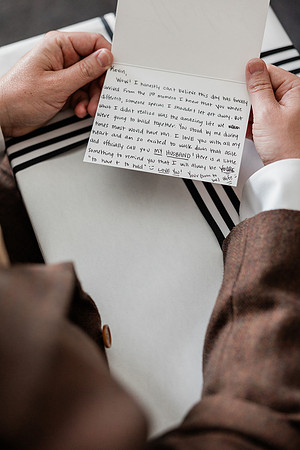 Wow! I honestly can't believe this day has finally
arrived. From the 1st moment I knew that you were
different, someone special I shouldn't let get away. But
what I didn't realize was the amazing life we
were going to build together. You stood by me during
times most would have ran. I love you with all my
heart and am so excited to walk down that aisle
and officially call you MY HUSBAND! Here is a little
something to remind you that I will always be
"to have & to hold" Love You!